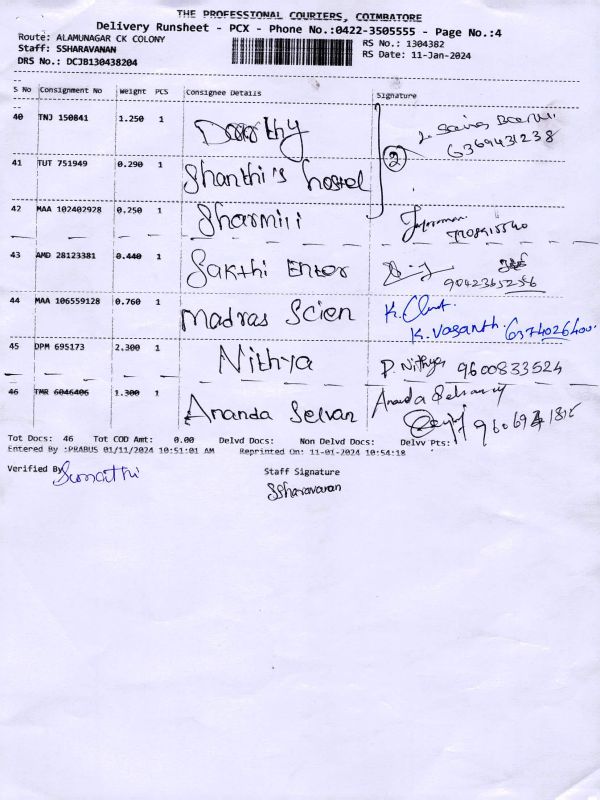 THE PROFESSIONAL COURIERS, COIMBATORE
Delivery Runsheet - PCX - Phone No.:0422-3505555 - Page No.:4
Route: ALAMUNAGAR CK COLONY
RS No.: 1304382
Staff: SSHARAVANAN
RS Date: 11-Jan-2024
DRS No.: DCJB130438204
S No Consignment No Weight PCS Consignee Details Signature
40 TNJ 150841 1.250 1 6369431238
41 TUT 751949 0.290 1 Shanthi's hostel 2
42 MAA 102402928 0.250 1 Sharmili
43 AMD 28123381 0.440 1 Sakthi Enter 9042365256
44 MAA 106559128 0.760 1 Madras Scien
K. Vasanth. 6374026400
45 DPM 695173 2.300 1 Nithya P. Nithya 9600833524
46 TMR 6046406 1.300 1 Ananda Selvan Ananda Selvan
Tot Docs: 46 Tot COD Amt: 0.00 Delvd Docs: Non Delvd Docs: Delvv Pts:
Entered By :PRABUS 01/11/2024 10:51:01 AM Reprinted On: 11-01-2024 10:54:18
Verified By Sumathi
Staff Signature
SSharavanan